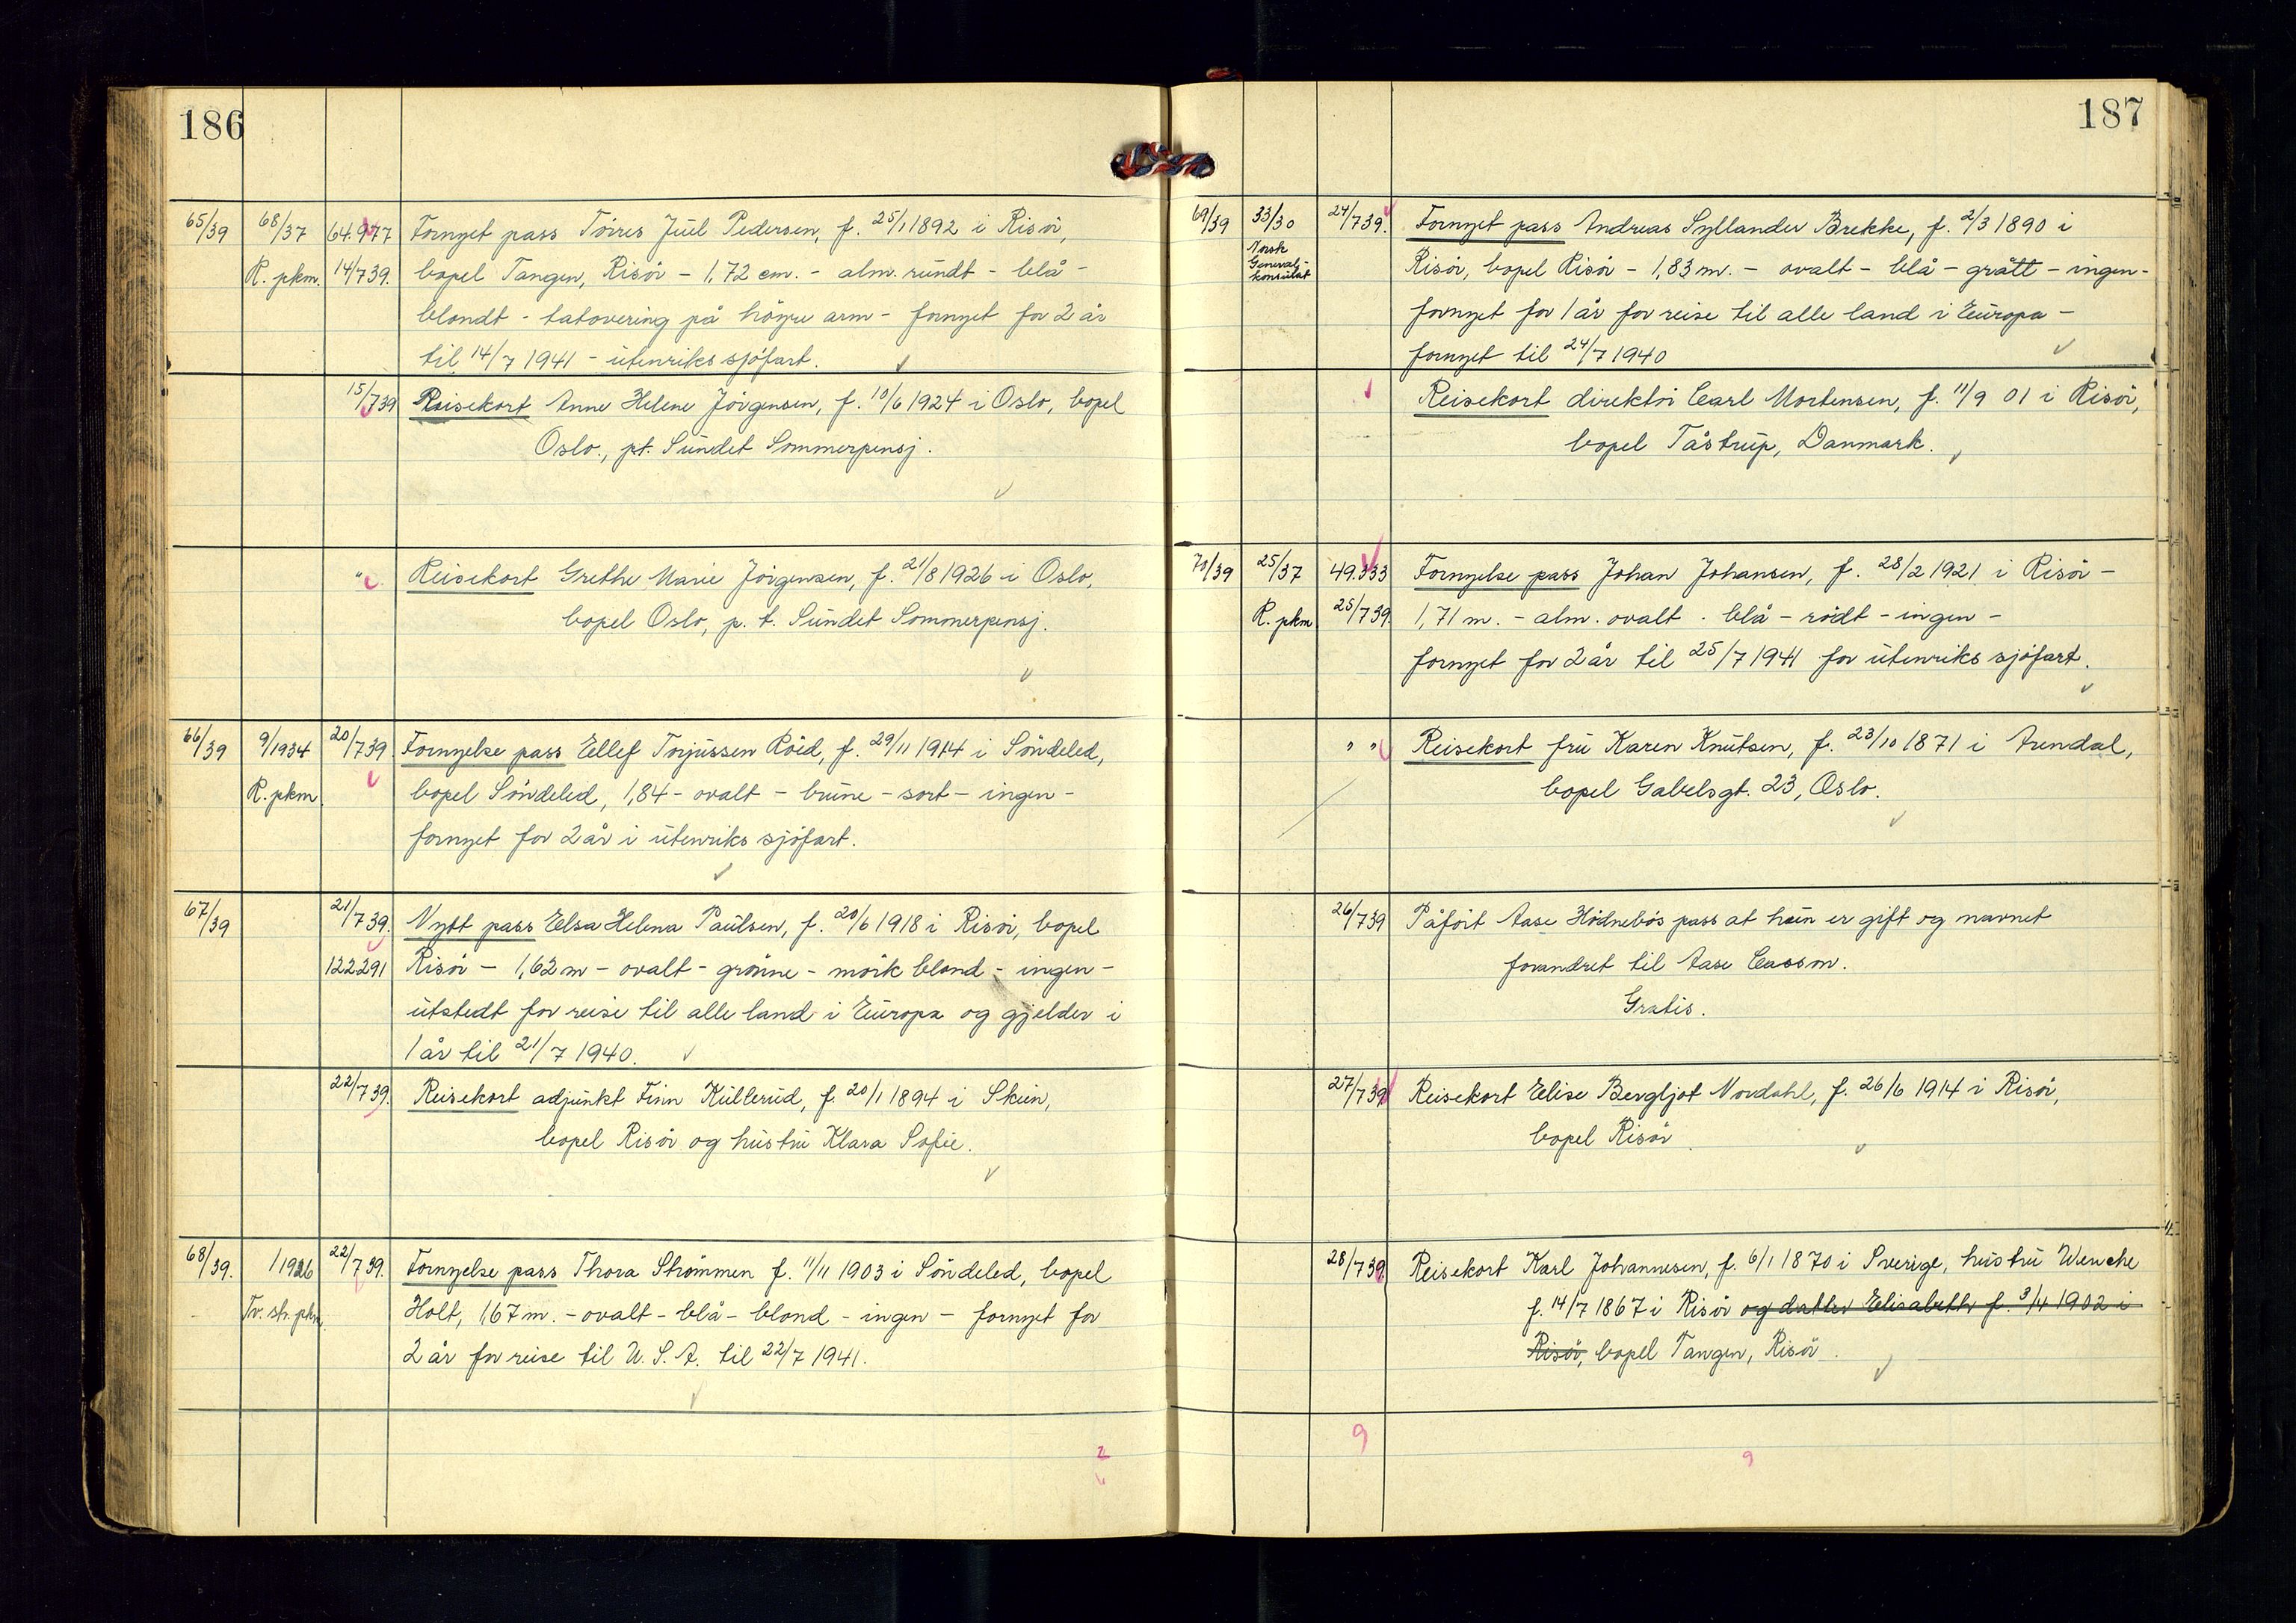 186
65/39 68/37 64.977 Fornyet pass Törres Juul Pedersen, f. 25/1 1892 i Risör,
R. pkm. 14/7 39. bopel Tangen, Risör - 1,72 cm. - alm. rundt - blå -
blondt - tatovering på höyre arm - fornyet for 2 år
til 14/7 1941 - utenriks sjöfart.
15/7 39 Reisekort Anne Helene Jörgensen, f. 10/6 1924 i Oslo, bopel
Oslo., pt. Sundet Sommerpensj.
" Reisekort Grethe Marie Jörgensen, f. 21/8 1926 i Oslo,
bopel Oslo, p. t. Sundet Sommerpensj.
66/39 9/1934 20/7 39 Fornyelse pass Ellef Torjussen Röid, f. 29/11 1914 i Söndeled,
R. pkm bopel Söndeled, 1,84 - ovalt - brune - sort - ingen -
fornyet for 2 år i utenriks sjöfart.
67/39 21/7 39. Nytt pass Elsa Helena Paulsen, f. 20/6 1918 i Risör, bopel
122291 Risör - 1,62 m - ovalt - grönne - mörk blond - ingen -
utstedt for reise til alle land i Europa og gjelder i
1 år til 21/7 1940.
22/7 39. Reisekort adjunkt Finn Kullerud, f. 20/1 1894 i Skien,
bopel Risör og hustru Klara Sofie.
68/39. 1/1926 22/7 39. Fornyelse pass Thora Strömmen f. 11/11 1903 i Söndeled, bopel
Tv. str. pkm. Holt, 1,67 m. - ovalt - blå - blond - ingen - fornyet for
2 år for reise til U. S. A. til 22/7 1941.
2
187
69/39 33/30 24/7 39. Fornyet pass Andreas Syllander Brekke, f. 2/3 1890 i
Norsk
General-
konsulat
Risör, bopel Risör - 1,83 m. - ovalt - blå - grått - ingen -
fornyet for 1 år for reise til alle land i Europa -
fornyet til 24/7 1940
Reisekort direktör Carl Mortensen, f. 11/9 01 i Risör,
bopel Tåstrup, Danmark.
70/39 25/37 49.333 Fornyelse pass Johan Johansen, f. 28/2 1921 i Risör -
R. pkm 25/7 39. 1,71 m. - alm. ovalt - blå - rödt - ingen -
fornyet for 2 år til 25/7 1941 for utenriks sjöfart.
" " Reisekort fru Karen Knutsen, f. 23/10 1871 i Arendal,
bopel Gabelsgt. 23, Oslo.
26/7 39 Påfört Aase Hödnebös pass at hun er gift og navnet
forandret til Aase Casson.
Gratis.
27/7 39 Reisekort Elise Bergljot Nordahl, f. 26/6 1914 i Risör,
bopel Risör
28/7 39. Reisekort Karl Johannesen, f. 6/1 1870 i Sverige, hustru Wenche
f. 14/7 1867 i Risör og datter Elisabeth f. 3/4 1902 i
Risör, bopel Tangen, Risör.
9
9